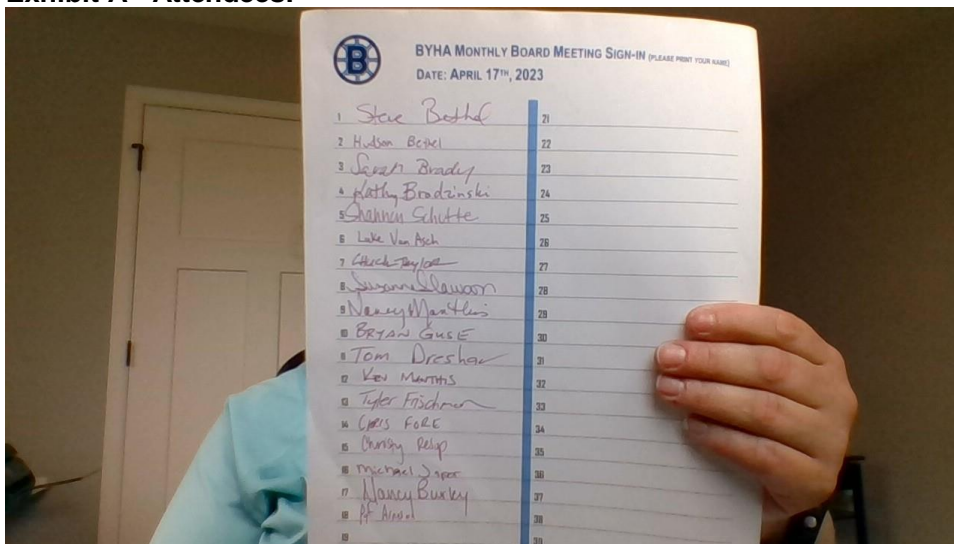 Exhibit A - Attendees:
B
BYHA MONTHLY BOARD MEETING SIGN-IN (PLEASE PRINT YOUR NAME)
DATE: APRIL 17TH, 2023
1 Steve Bethel
2 Hudson Bethel
3 Sarah Brady
4 Kathy Brodzinski
5 Shannon Schutte
6 Luke Van Asch
7 Chuck Taylor
8 Susanne Clawson
9 Nancy Manthis
10 BRYAN GUSE
11 Tom Dreshar
12 KEV MANTHIS
13 Tyler Frischmon
14 CHRIS FORE
15 Christy
16 Michael
17 Nancy Burky
18
19
21
22
23
24
25
26
27
28
29
30
31
32
33
34
35
36
37
38
39